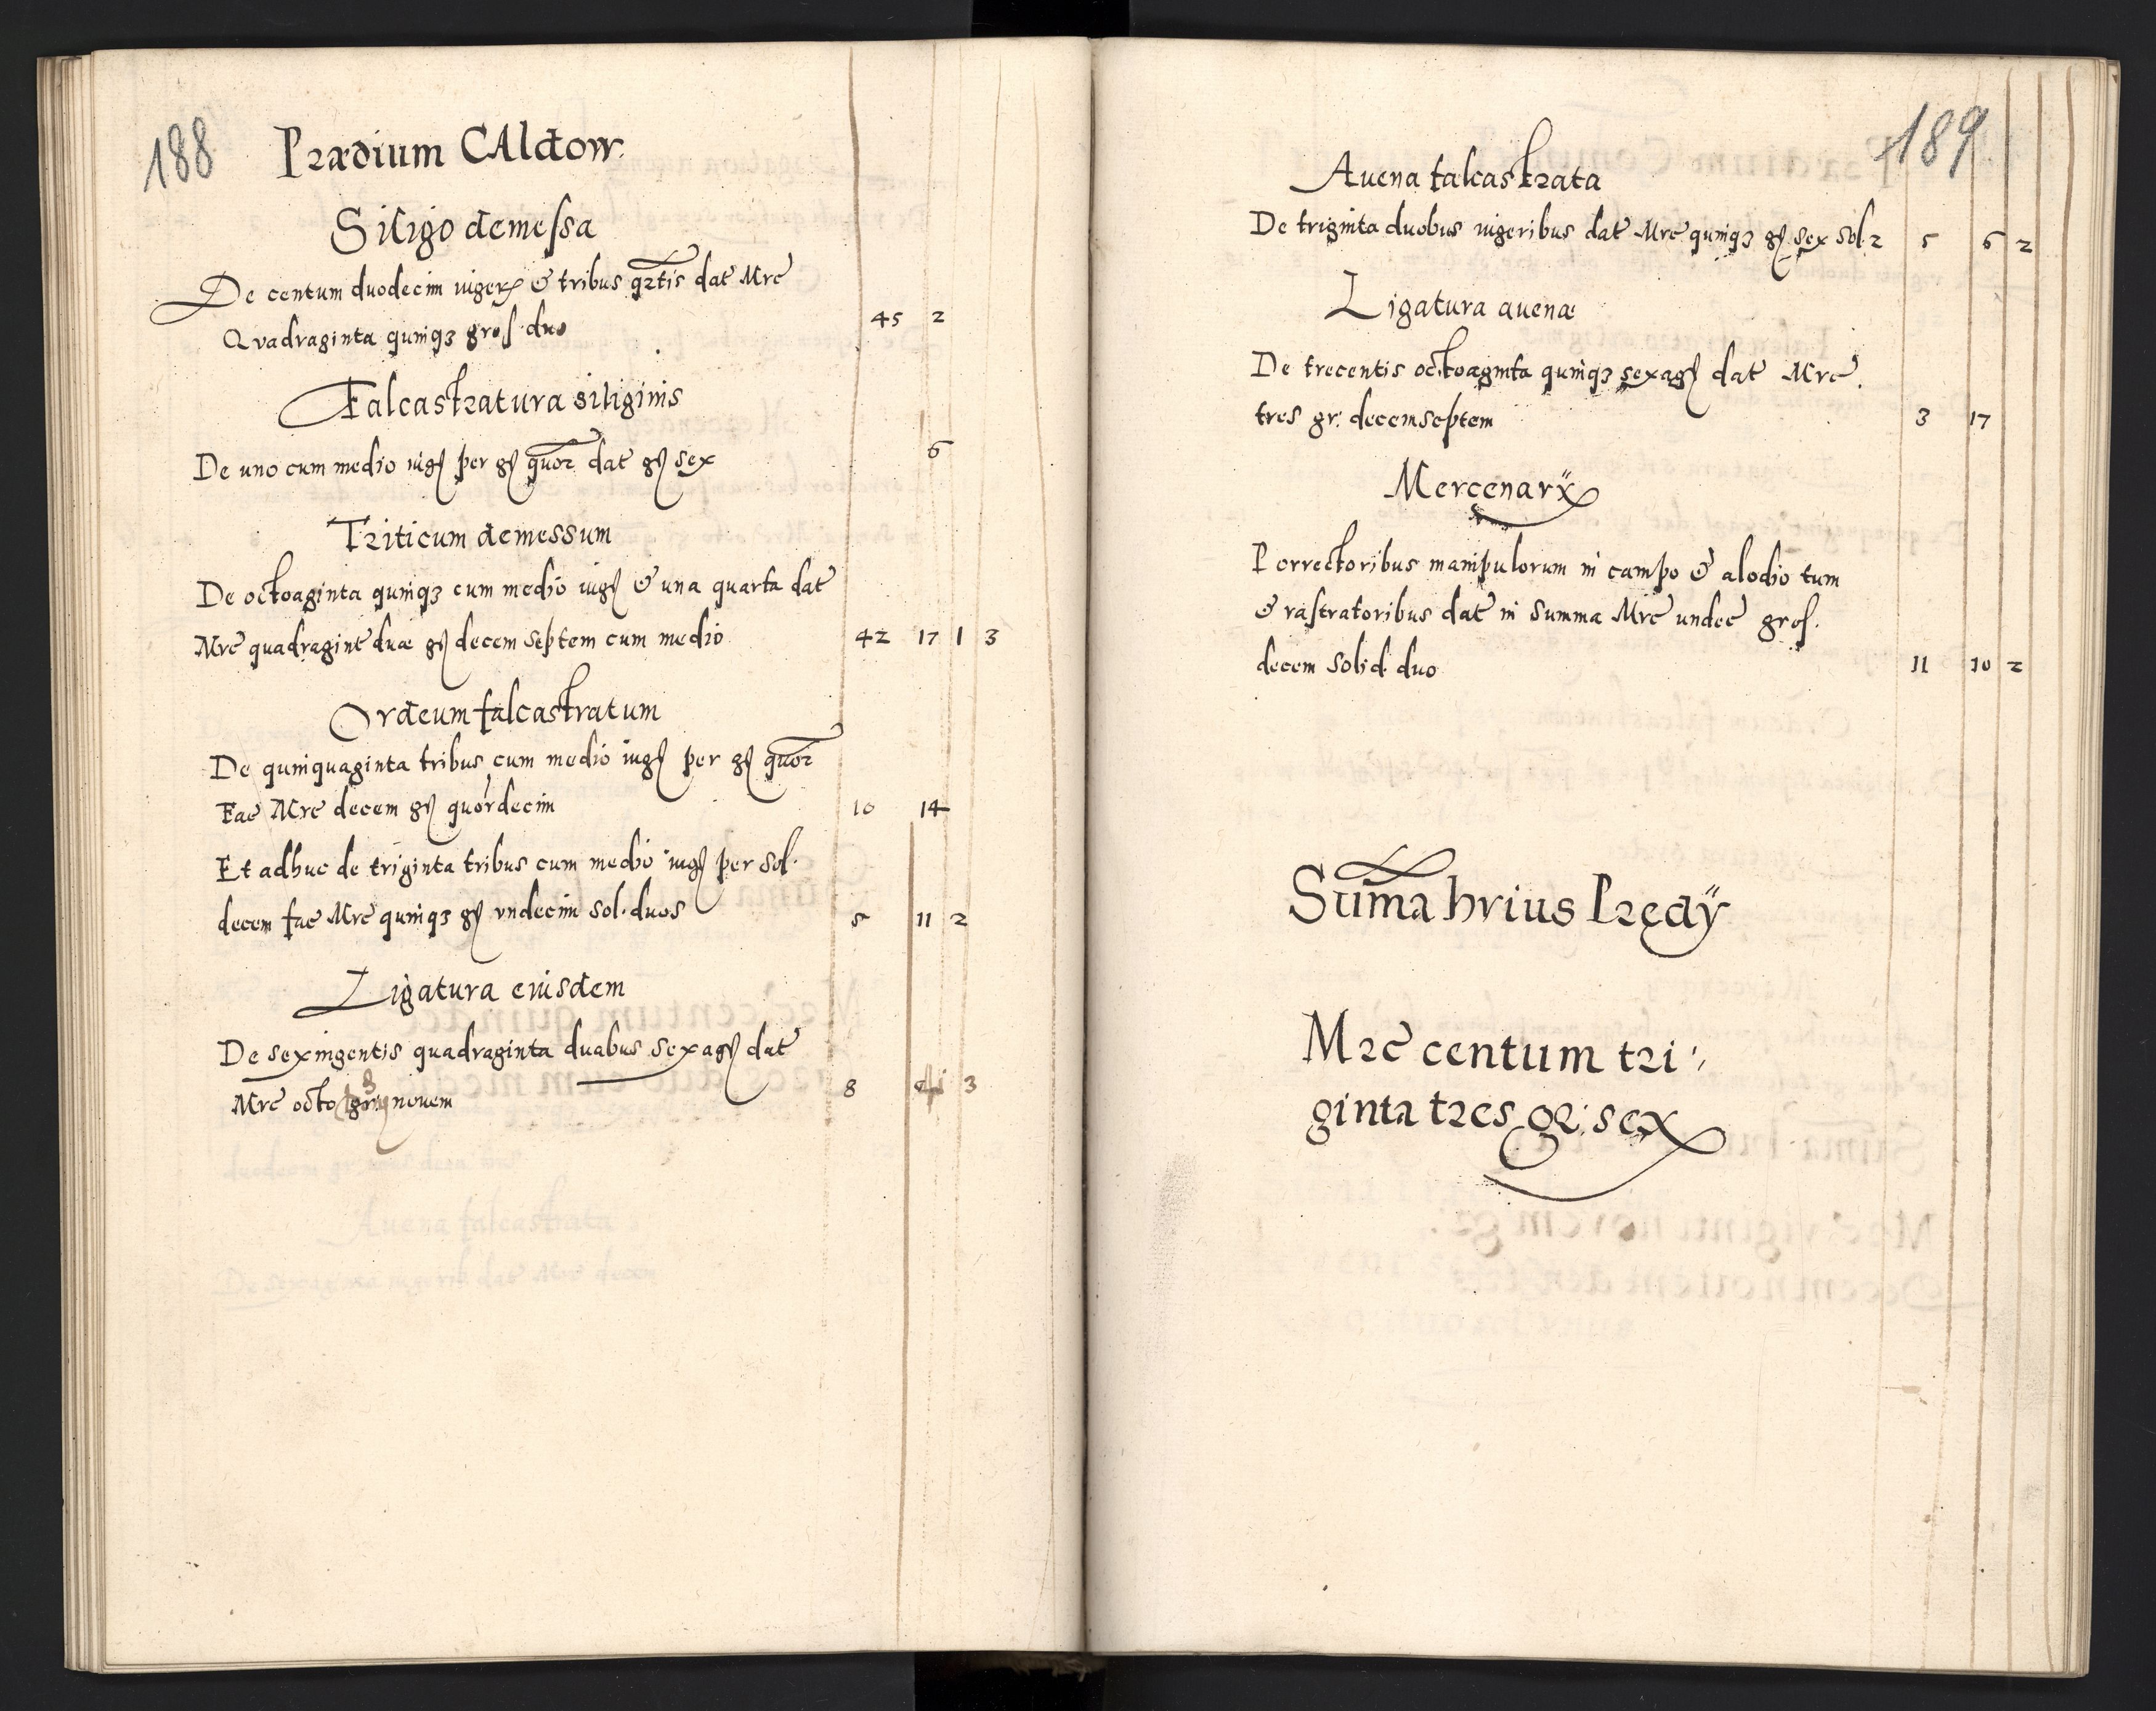 188
Prædium CAldow
Siligo demeſsa
De centum duodecim iugerꝝ & tribus qrtis dat Mrc 
Qvadraginta quinqꝫ groſ duo 45 2
Falcastratura siliginis
De uno cum medio iugꝭ per gꝭ quor dat gꝭ sex 6
Triticum demessum
De octoaginta quinqꝫ cum medio iugꝭ & una quarta dat
Mrc quadragint duæ gꝭ decem septem cum medio 42 17 1 3
Ordeum falcastratum
De quinquaginta tribus cum medio iugꝭ per gꝭ quor
Fac Mrc decem gꝭ quordecim 10 14
Et adhuc de triginta tribus cum medio iugꝭ per sol.
decem fac Mrc quinqꝫ gꝭ vndecim sol. duos 5 11 2
Ligatura eiusdem
De sexingentis quadraginta duabus sexagꝭ dat
Mrc octo novem 8 3
189
Auena falcastrata
De triginta duobus iugeribus dat Mrc quinqꝫ gꝭ sex sol. 2 5 6 2
Ligatura auenæ
De trecentis octoaginta quinqꝫ sexagꝭ dat Mrc.
tres gr: decemseptem 3 17
Mercenarÿ
Porrectoribus manipulorum in campo & alodio tum
& raſtratoribus dat in summa Mrc undec groſ.
decem solid. duo 11 10 2
Sūma hvius Prędÿ
Mrc centum tri
ginta tres gr: sex